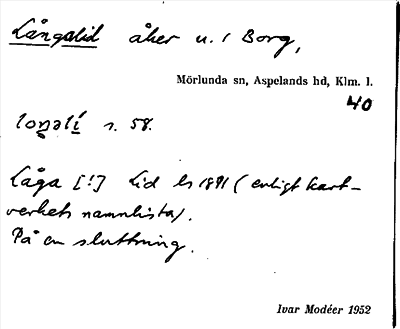 Långalid åker u. / Borg,
Mörlunda sn, Aspelands hd, Klm. l.
40
loŋalí s. 58.
Låga [!] Lid ls 1891 (enligt kart-
verkets namnlista).
På en sluttning.
Ivar Modéer 1952